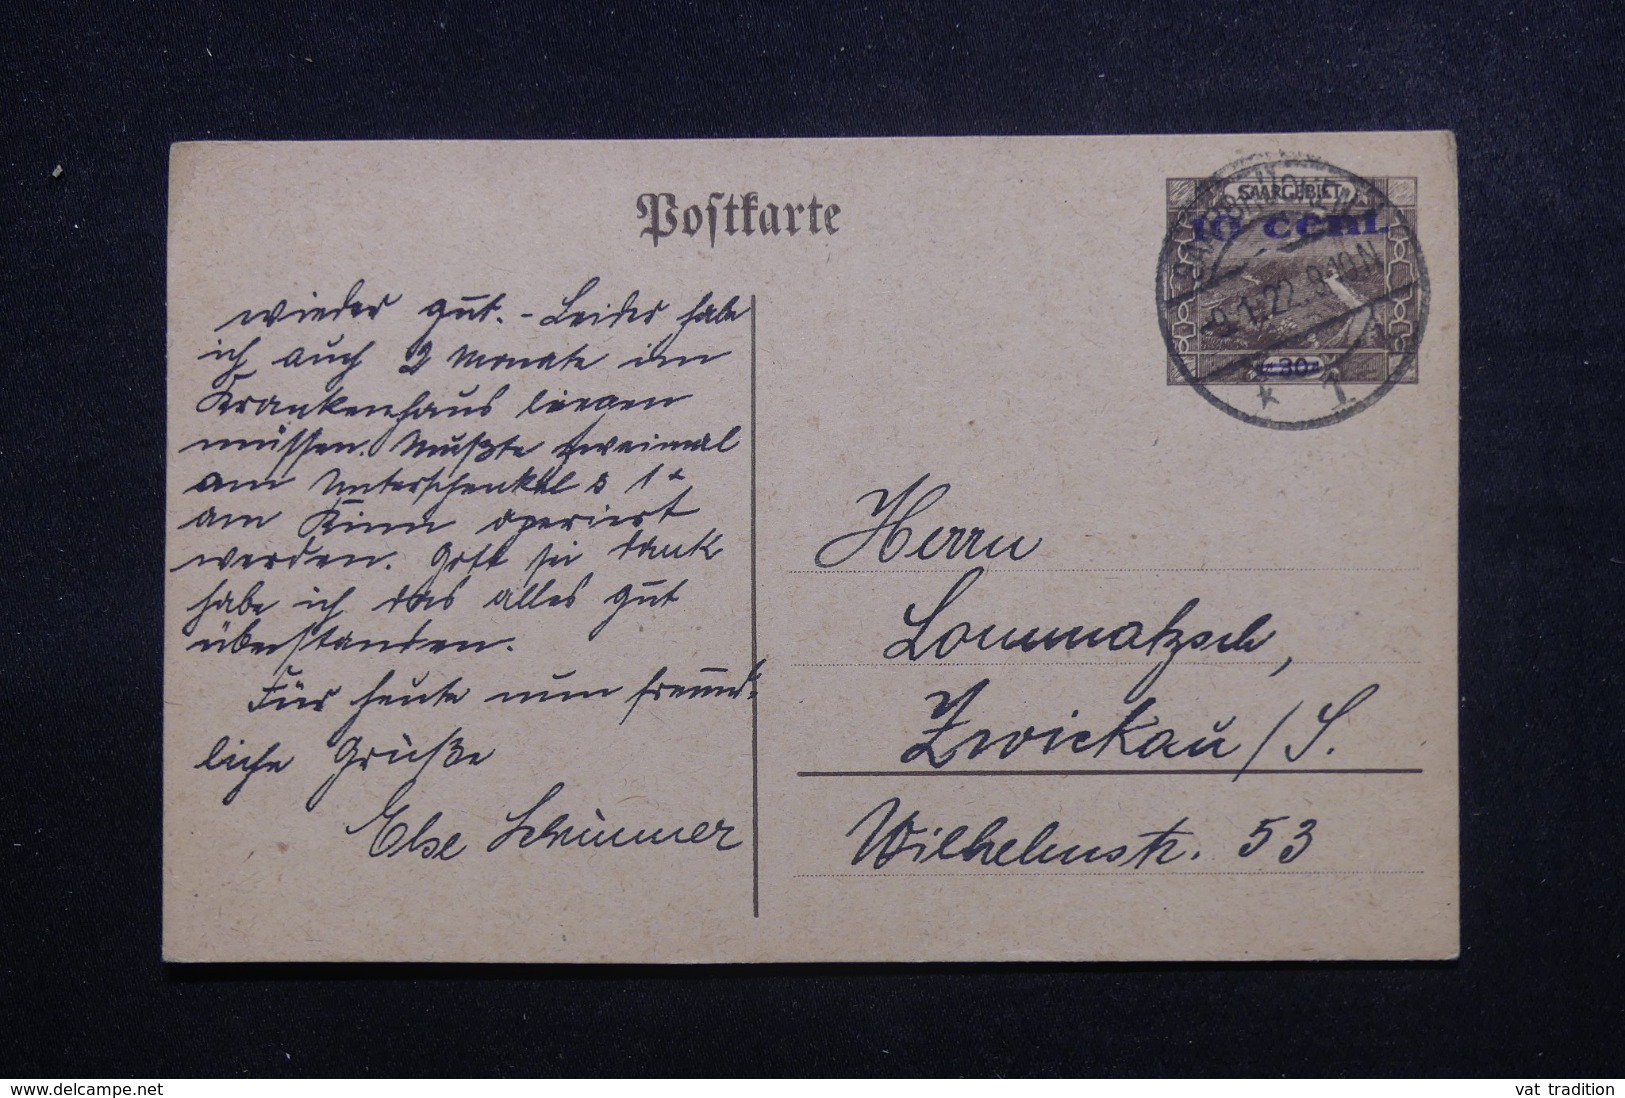 Postkarte
SAARGEBIET
10 cent.
SAARBRÜCKEN
9.1.22. 9-10N
30
* 1
wieder gut. - Leider habe
ich auch 2 Monate im
Krankenhaus liegen
müssen. Mußte zweimal
am Unterschenkel & 1x
am Kinn operiert
werden. Gott sei dank
habe ich das alles gut
überstanden.
Für heute nun freund-
liche Grüße
Else Schimmer
Herrn
Lommatzsch,
Zwickau/S.
Wilhelmstr. 53
delcampe.net
vat tradition